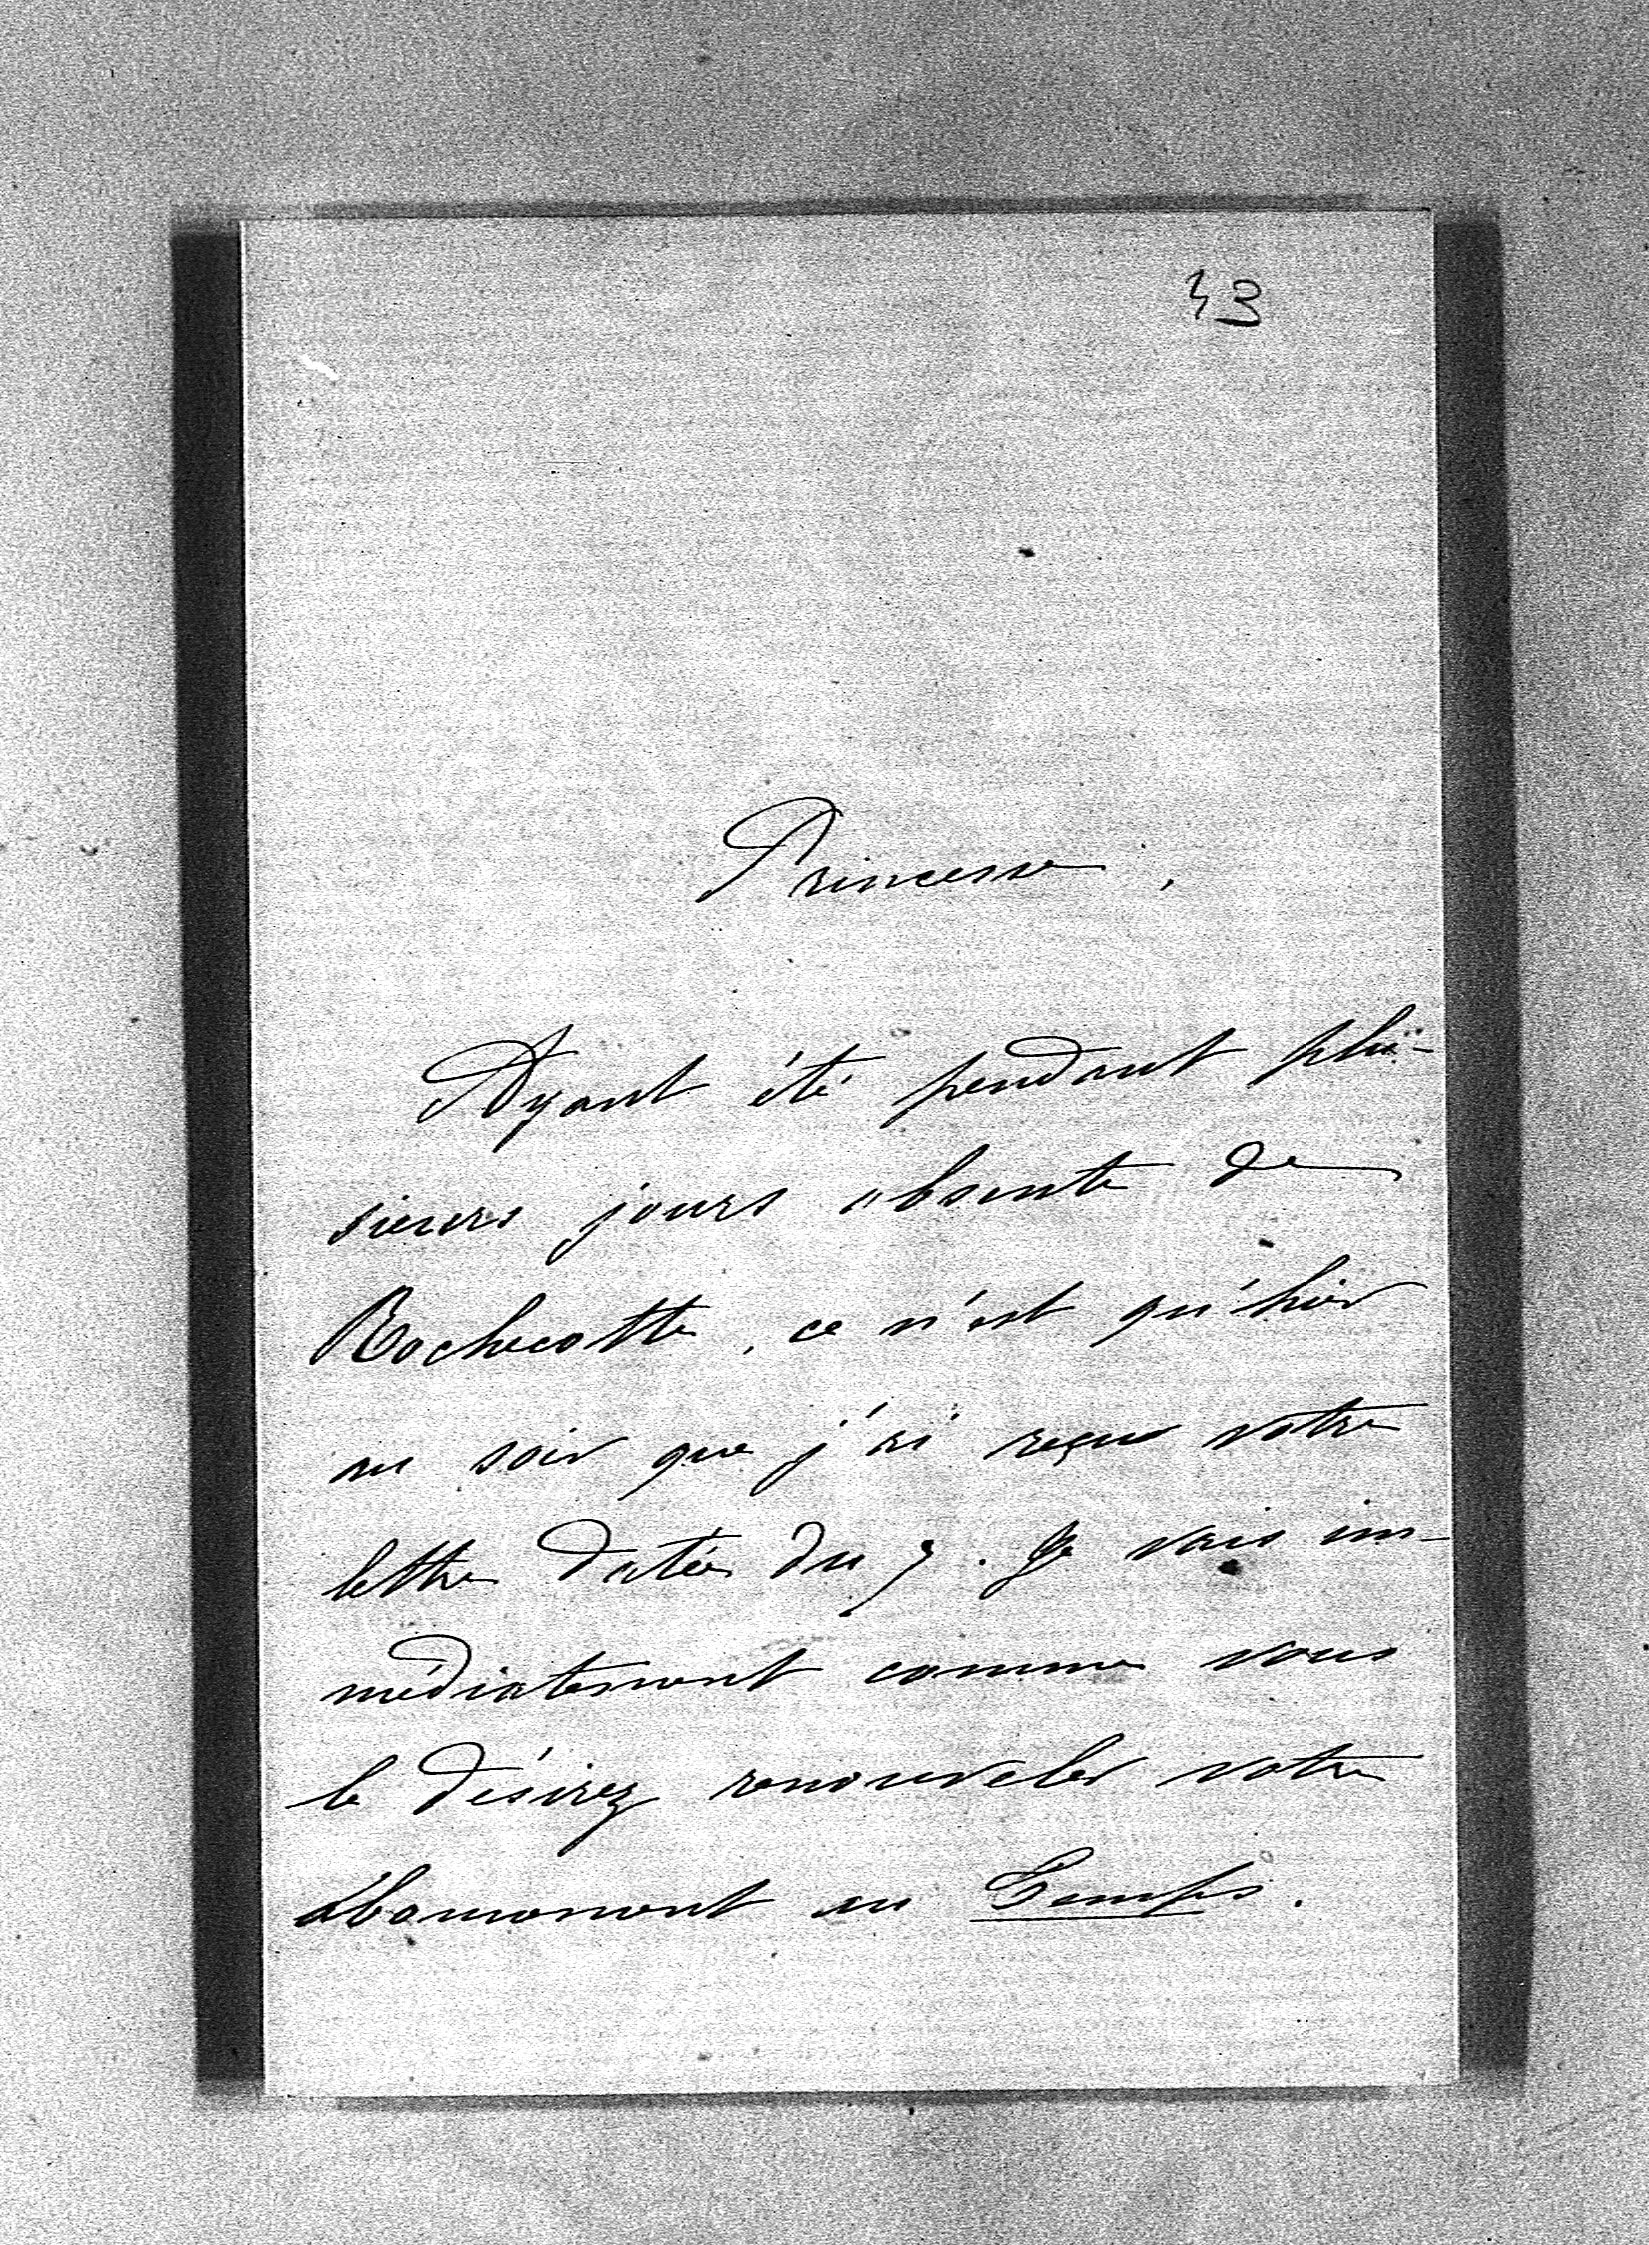 43
Princesse,
Ayant été pendant plu-
sieurs jours absente de
Rochecotte, ce n'est qu'hier
au soir que j'ai reçu votre
lettre datée du 9. Je vais im-
médiatement comme vous
le désirez renouveler votre
abonnement au Temps.